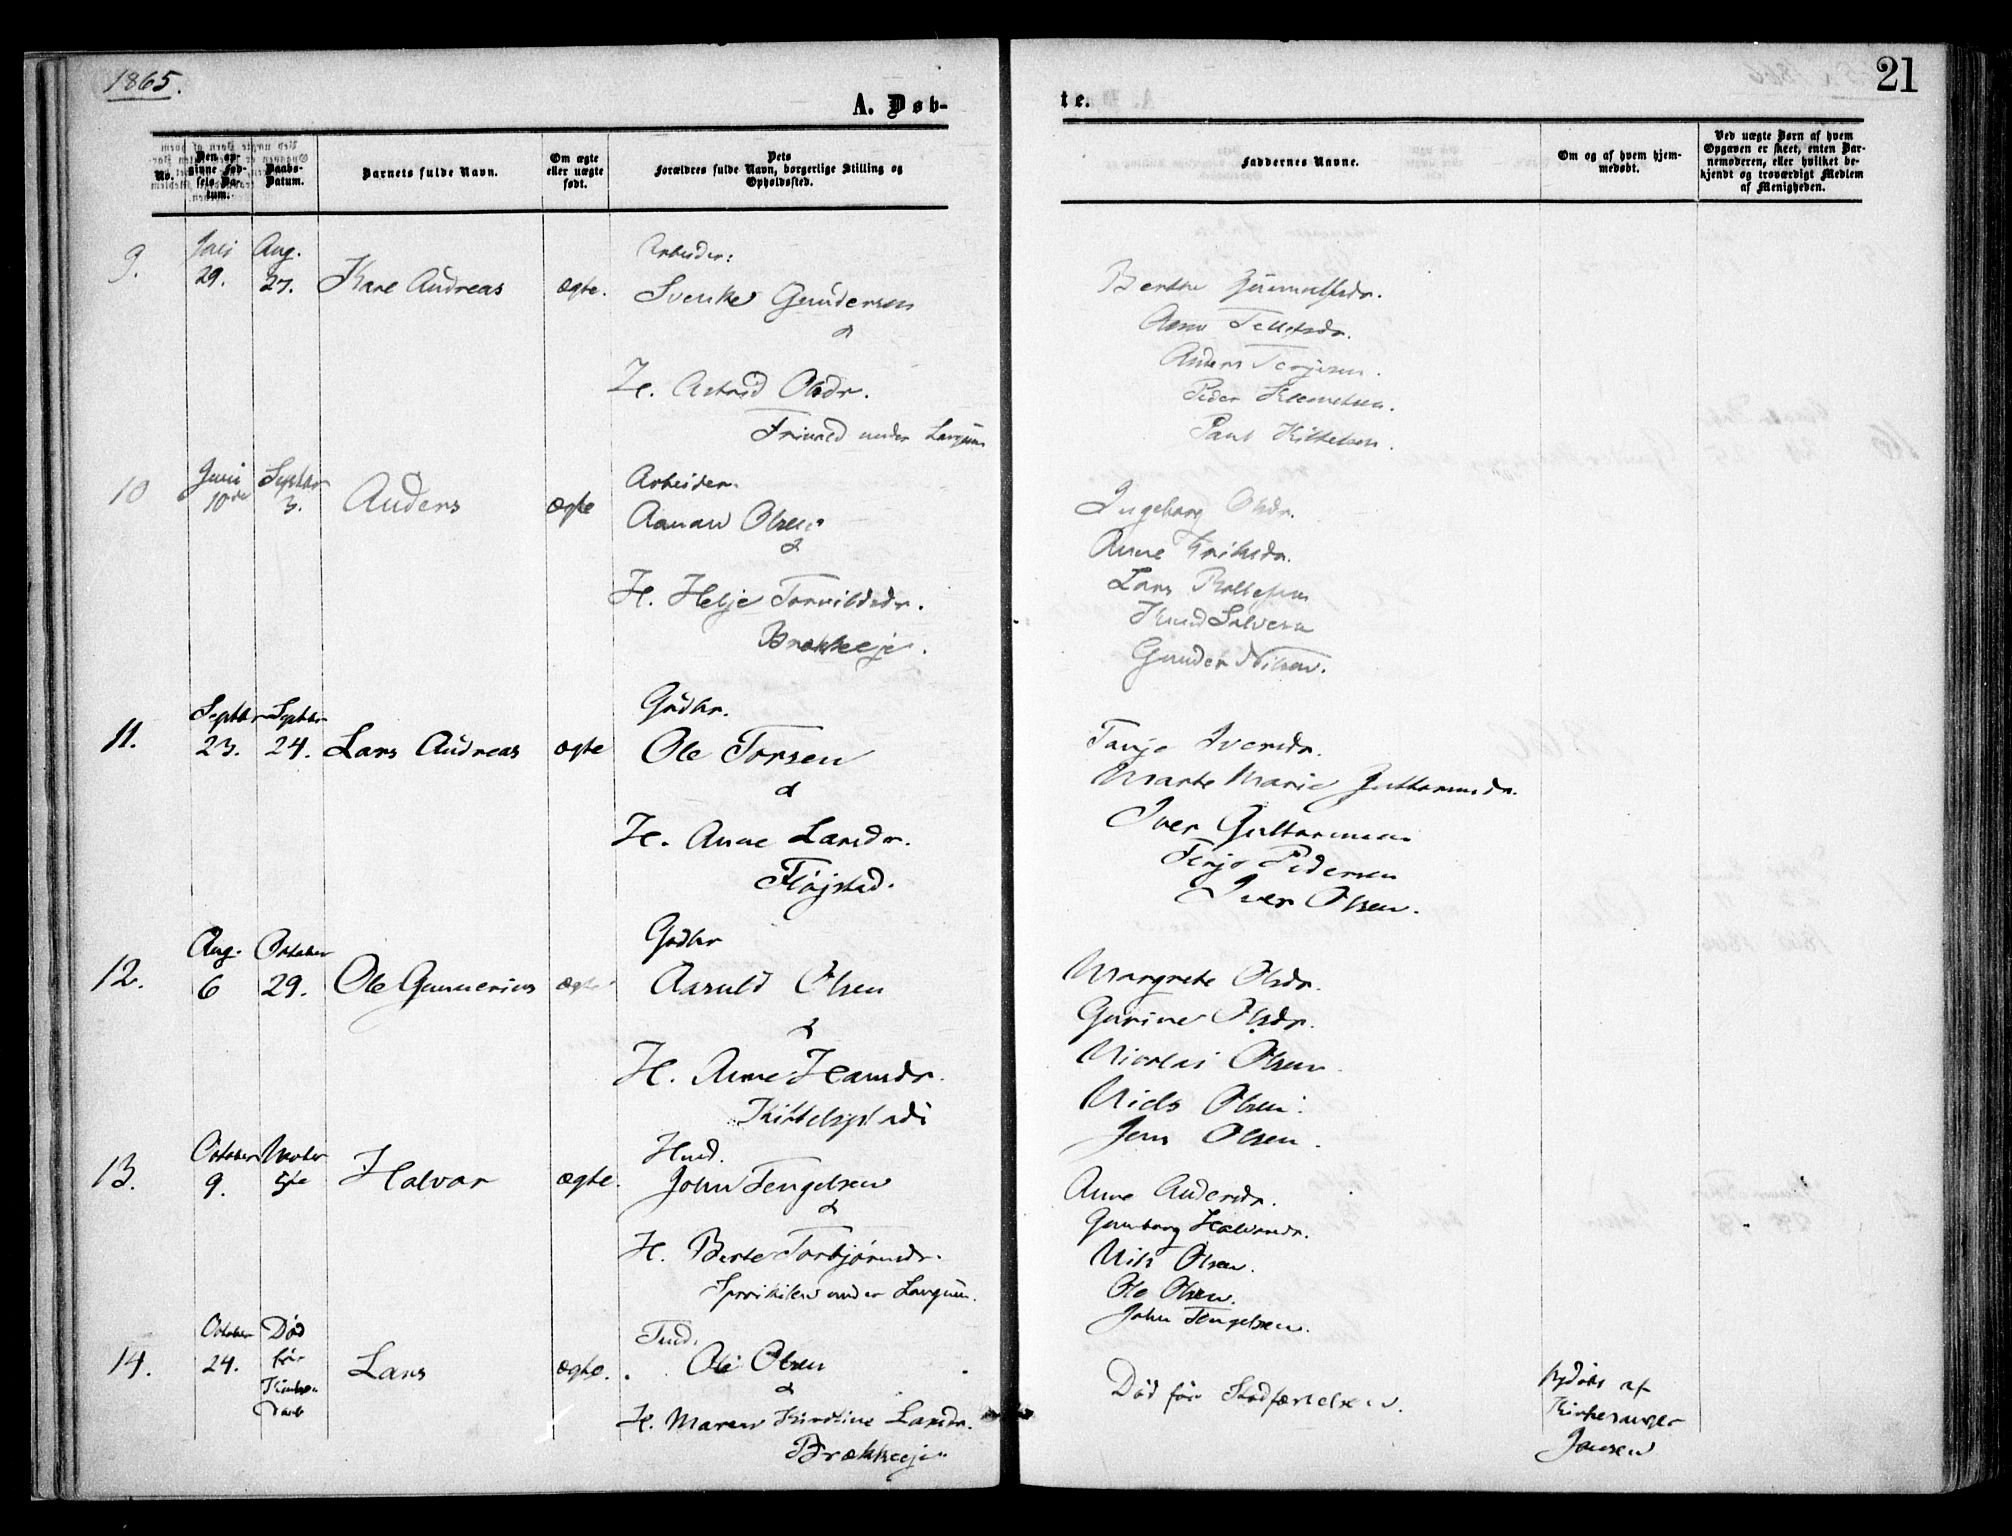 1865.
21
A. Døb-
te.
No.
Den op-
givne Fød-
sels Da-
tum.
Daabs-
Datum.
Barnets fulde Navn.
Om ægte
eller uægte
født.
Dets
Forældres fulde Navn, borgerlige Stilling og
Opholdssted.
Faddernes Navne.
Om og af hvem hjem-
medøbt.
Ved uægte Børn af hvem
Opgaven er skeet, enten Bar-
nemoderen, eller hvilket be-
kjendt og troværdigt Medlem
af Menigheden.
9.
Juli
29.
Aug.
27.
Kare Andreas
ægte.
Arbeider:
Svenke Gundersen
&
H. Astrid Olsdr.
under Langum
Berthe
Anne Tellefsdr.
Anders Terjesen.
Peder
Paul Kittelsen.
10
Juni
10de
Septbr
3.
Anders
ægte
Arbeider.
Aanan Olsen
&
H. Helje Torvildsdr.
Brækkeeje.
Ingeborg Olsdr.
Anne Eriksdr.
Lars Rollefsen
Knud Salvesen
Gunder Nilsen.
11.
Septbr
23.
Septbr
24.
Lars Andreas
ægte
Gådbr.
Ole Torsen
&
H. Anne Larsdr.
Fløjstad.
Tarje Iversdr.
Marte Marie Guttormsdr.
Iver Guttormsen
Terje Pedersen
Iver Olsen.
12.
Aug.
6
October
29.
Ole Gunnerius
ægte
Gådbr
Aasuld Olsen
&
H. Anne Hansdr.
Margrete Olsdr.
Gurine Olsdr.
Nicolai Olsen
Niels Olsen.
Jens Olsen.
13.
October
9.
Novber
5te
Halvor
ægte.
Husd.
John Tengelsen
&
H. Berte Torbjørnsdr.
under Langum.
Anne Andersdr.
Gunborg Halvorsdr.
Nils Olsen.
Ole Olsen.
John Tengelsen.
14.
October
24.
Død
før
Kirke-
daab
Lars
ægte.
Ole Olsen
&
H. Maren Kirstine Larsdr.
Brækkeeje
Død før Stadfæstelsen.
Hjdøbt af
Kirkesanger
Jansen